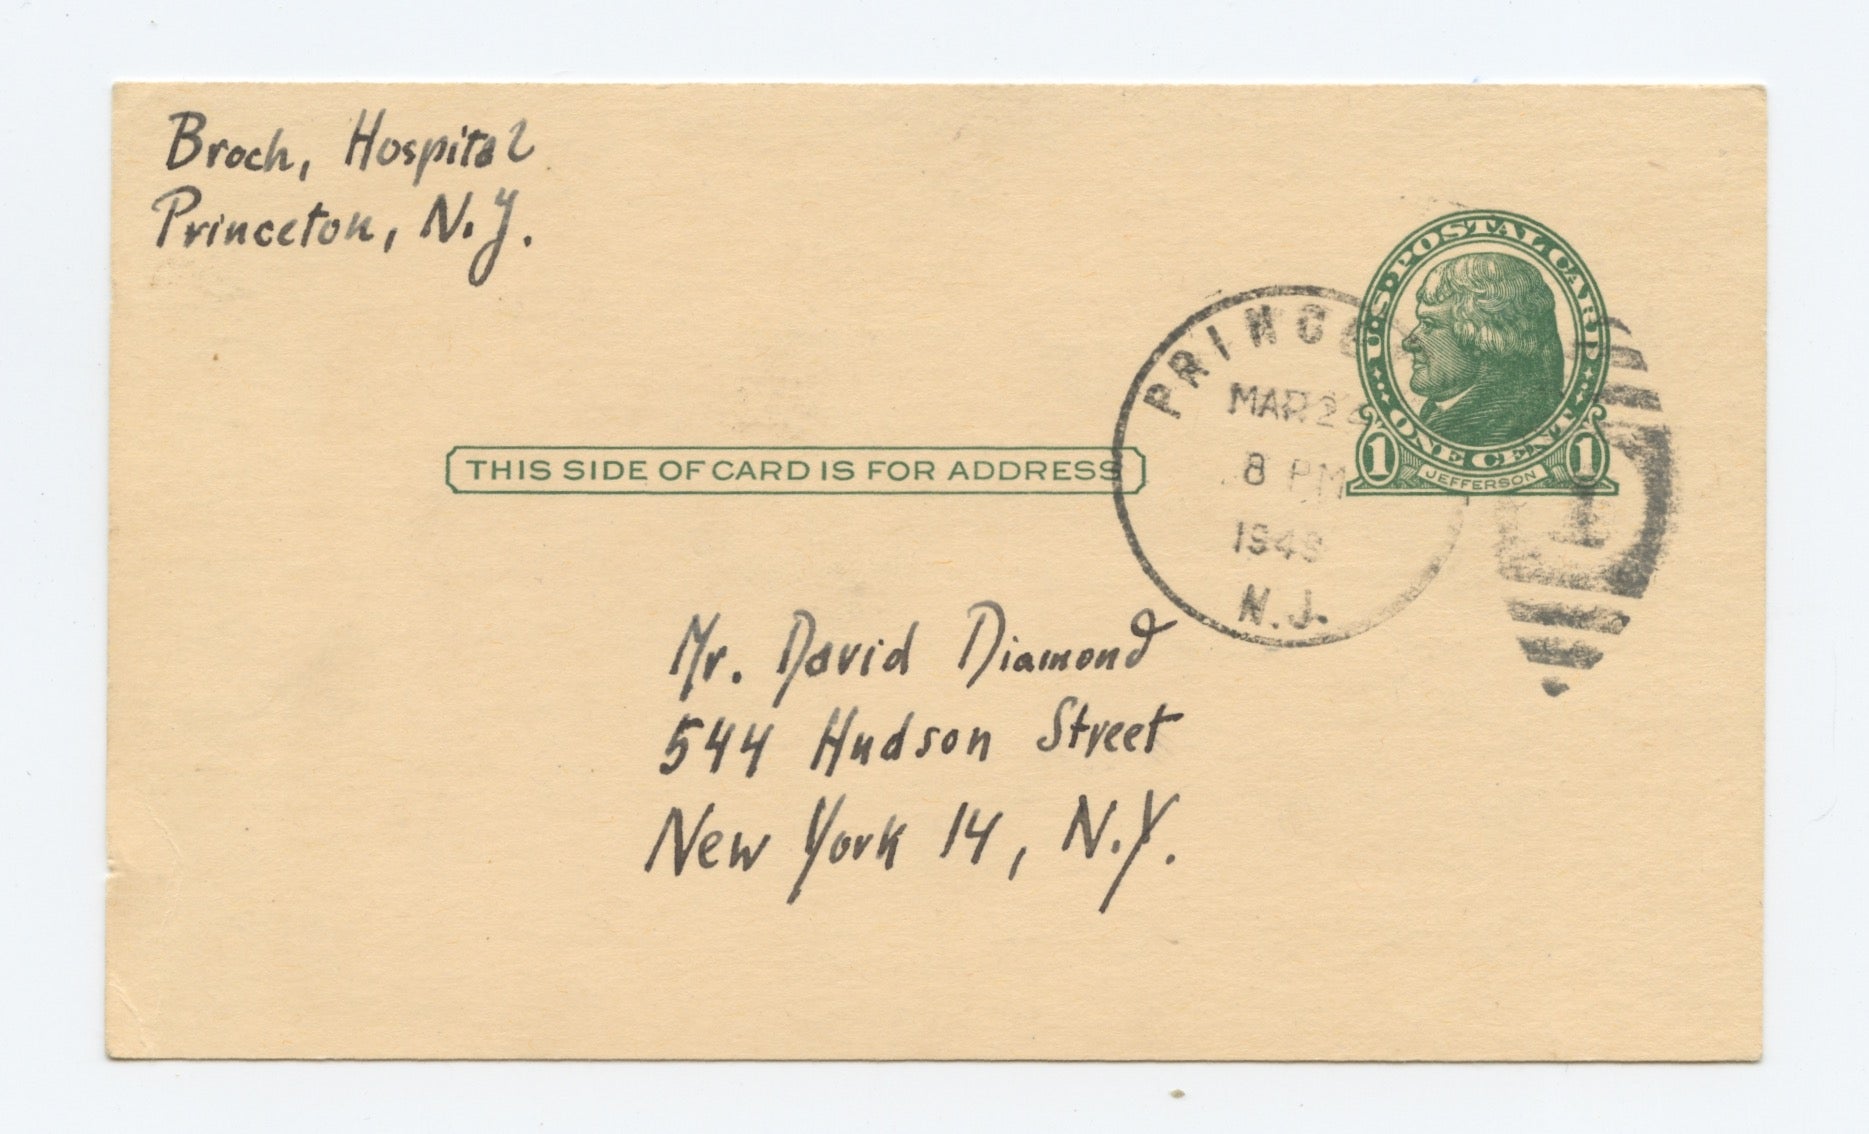 Broch, Hospital
Princeton, N.J.
U.S. POSTAL CARD
ONE CENT
1 JEFFERSON 1
PRINCE
MAR 2
8 PM
1949
N.J.
THIS SIDE OF CARD IS FOR ADDRESS
Mr. David Diamond
544 Hudson Street
New York 14, N.Y.